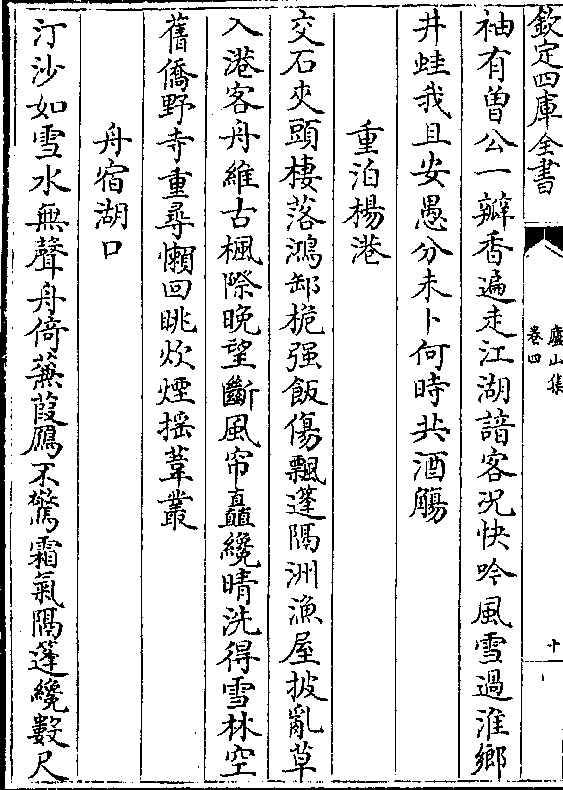 欽定四庫全書
廬山集
卷四
十
袖有曽公一瓣香遍走江湖諳客况快吟風雪過淮鄉
井蛙我且安愚分未卜何時共酒觴
重泊楊港
交石夾頭棲落鴻卸桅强飯傷飄蓬隅洲漁屋披亂草
入港客舟維古楓際晚望斷風帘矗纔晴洗得雪林空
舊僑野寺重尋懶回眺炊煙揺葦叢
舟宿湖口
汀沙如雪水無聲舟倚蒹葭鴈不驚霜氣隔篷纔數尺